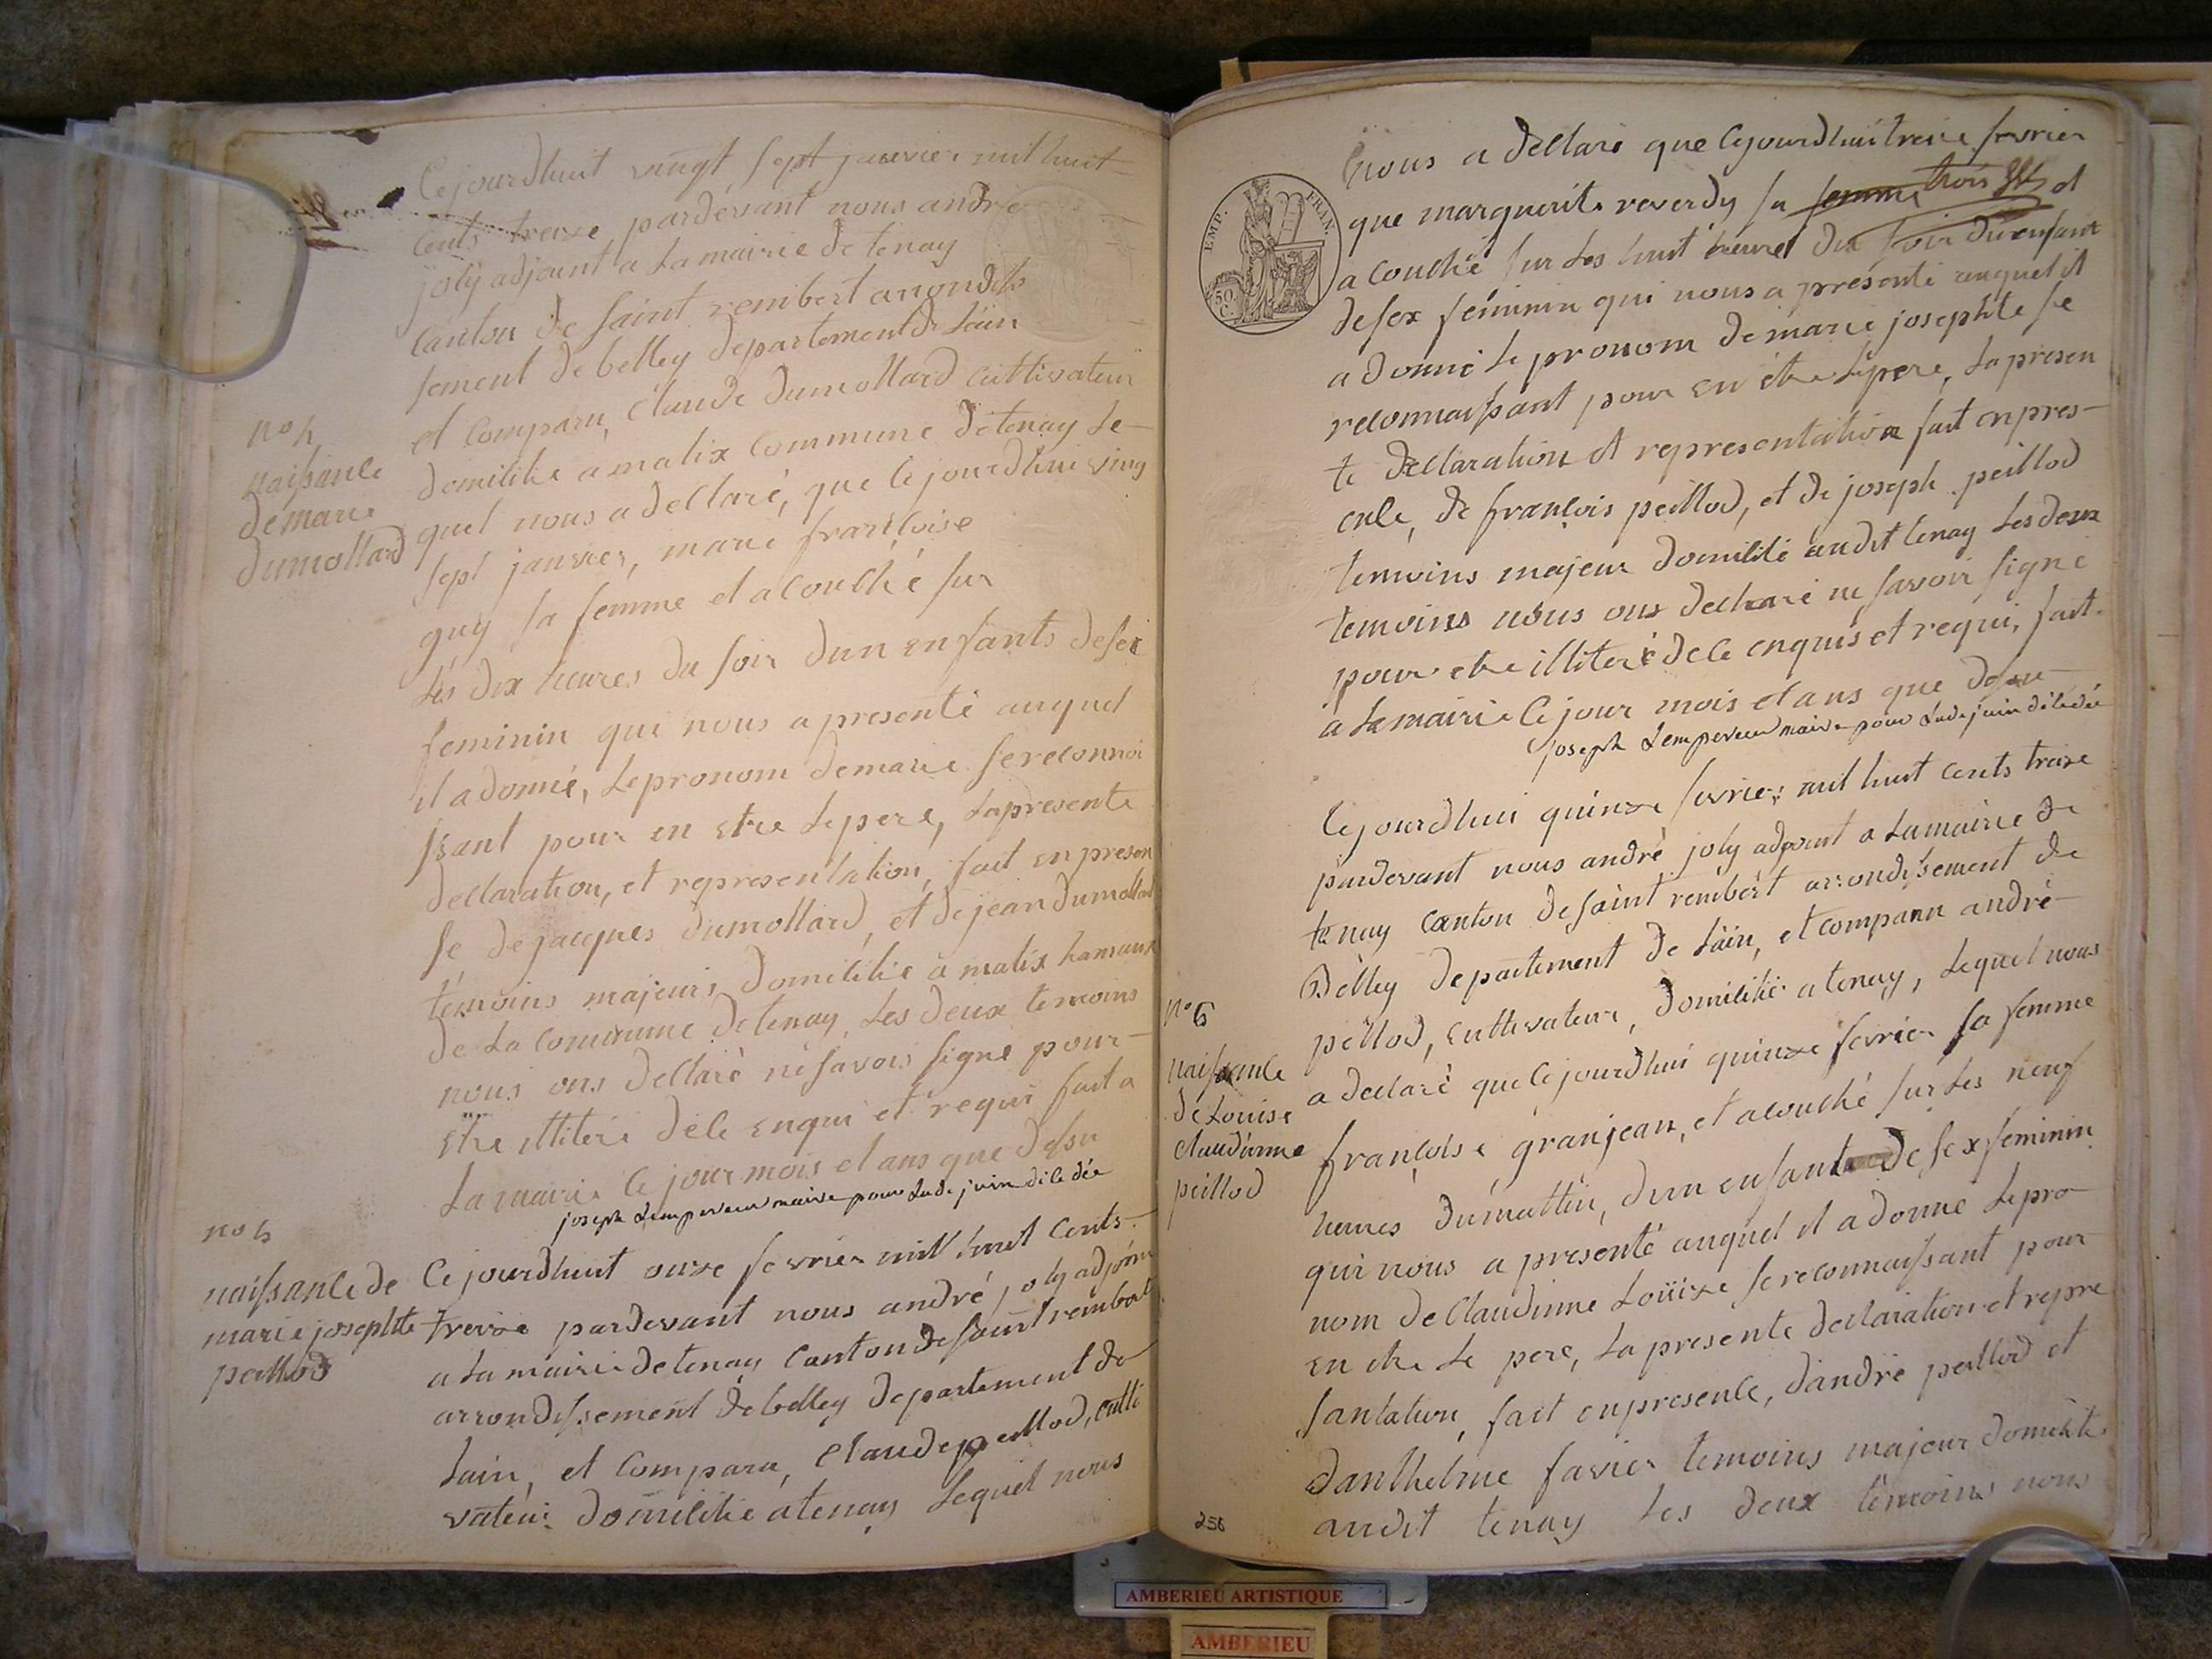 Cejourdhuit vingt sept janvier mil huit
cents treize pardevant nous andré
joly adjoint a la mairie de tenay
canton de saint rembert arrondis
sement de belley departement de Láin
et comparu, Claude dumollard cultivateur
n°4
naissance
de marie
dumollard
domicilié a malix commune de tenay Le-
quel nous a declaré, que cejourdhui ving
sept janvier, marie françoise
guy sa femme et acouché sur
Les dix heures du soir dun enfants de sex
feminin qui nous a presenté auquel
il a donné, Le pronom de marie se reconnoi
ssant pour en etre Le pere, La presente
declaration, et representation, fait en presen
se de jacques dumollard, et de jean dumollard
témoins majeurs domicilié a malix hamaux
de La commune de tenay, Les deux temoins
nous ons declaré ne savoir signé pour-
etre illiteré de ce enqui et requi fait a
La mairie ce jour mois et ans que desu
joseph Lempereur maire pour
n° 5
naissance de
marie josephte
peillod
Cejourdhuit onze fevrier mil huit cents-
treize pardevant nous andré joly adjoin
a La mairie de tenay Canton de saint rembert
arrondissement de belley departement de
Lain, et comparu, Claude peillod, culti
vateur domicilié a tenay Lequel nous
nous a declaré que cejourdhui treize fevrier
EMP. FRAN.
50 C.
que marguerite reverdy sa femme trois et
a couché sur Les huit heures du soir dun enfant
de sex féminin qui nous a presenté auquel il
a donné Le pronom de marie josephte se
reconnaissant pour en étre Lepere, La presen
te declaration et representation fait en pres-
ence, de françois peillod, et de joseph peillod
temoins majeur domicilié audit tenay Les deux
temoins nous ons declaré ne savoir signé
pour etre illiteré de ce enquis et requi, fait
a La mairie ce jour mois et ans que desu-
joseph Lempereur maire pour
Cejourdhui quinze fevrier mil huit cents treize
pardevant nous andré joly adjoint a La mairie de
tenay canton de saint rembert arrondissement de
Belley departement de Láin, et comparu andré-
n°6
naissance
de Louise
claudinne
peillod
peillod, cultivateur, domicilié a tenay, Lequel nous
a declaré que cejourdhui quinze fevrier sa femme
françoise granjean, et acouché sur Les neuf
heures du mattin, dun enfant de sex feminin
qui nous a presenté auquel il a donné Le pro-
nom de Claudinne Louise se reconnaissant pour
en etre Le pere, La presente declaration et repre
santation, fait en presence, dandré peillod et
danthelme favier temoins majeur domicilié
audit tenay Les deux témoins nous
256
AMBERIEU ARTISTIQUE
AMBERIEU